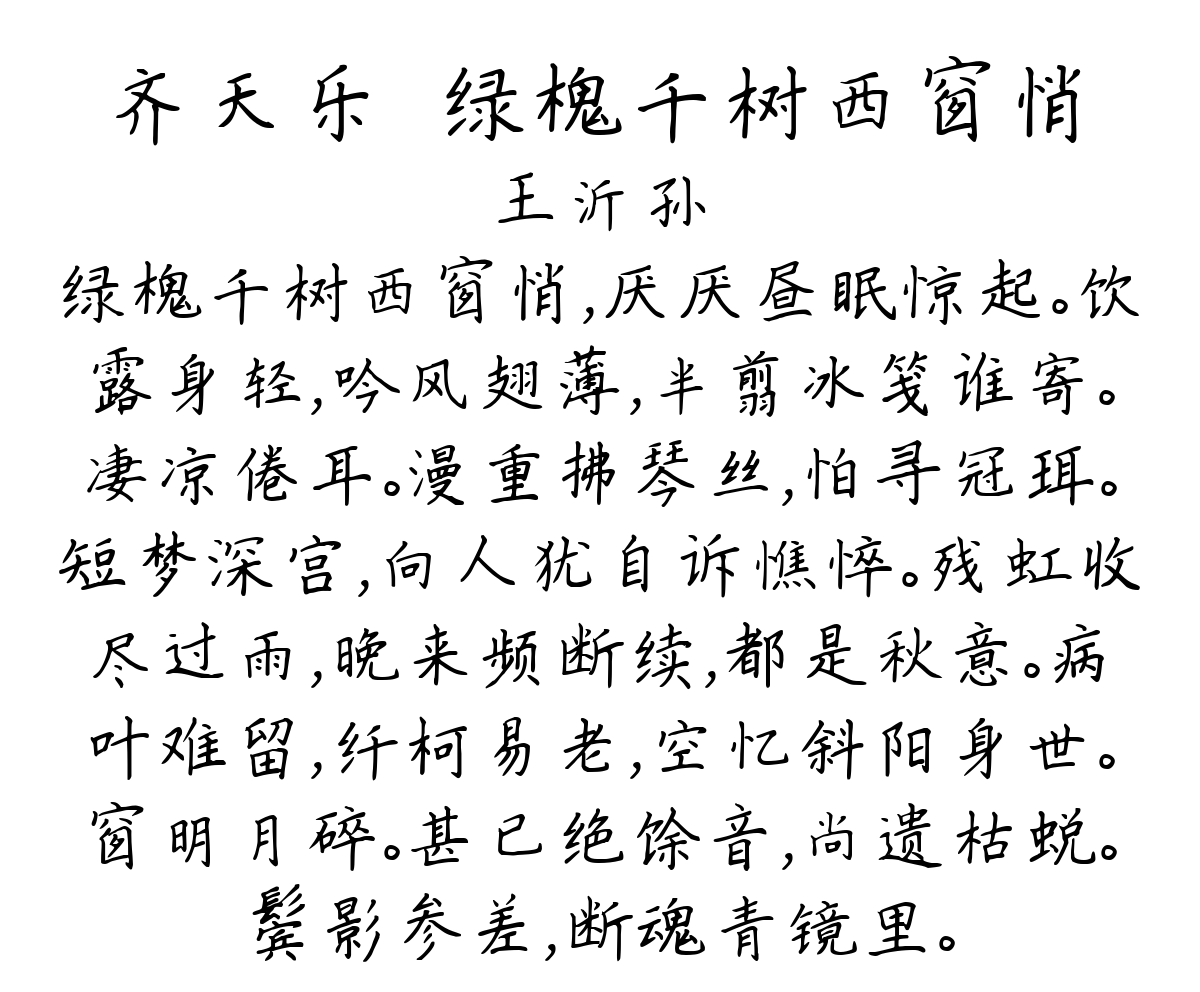 齐天乐 绿槐千树西窗悄
王沂孙
绿槐千树西窗悄,厌厌昼眠惊起。饮
露身轻,吟风翅薄,半翦冰笺谁寄。
凄凉倦耳。漫重拂琴丝,怕寻冠珥。
短梦深宫,向人犹自诉憔悴。残虹收
尽过雨,晚来频断续,都是秋意。病
叶难留,纤柯易老,空忆斜阳身世。
窗明月碎。甚已绝馀音,尚遗枯蜕。
鬓影参差,断魂青镜里。